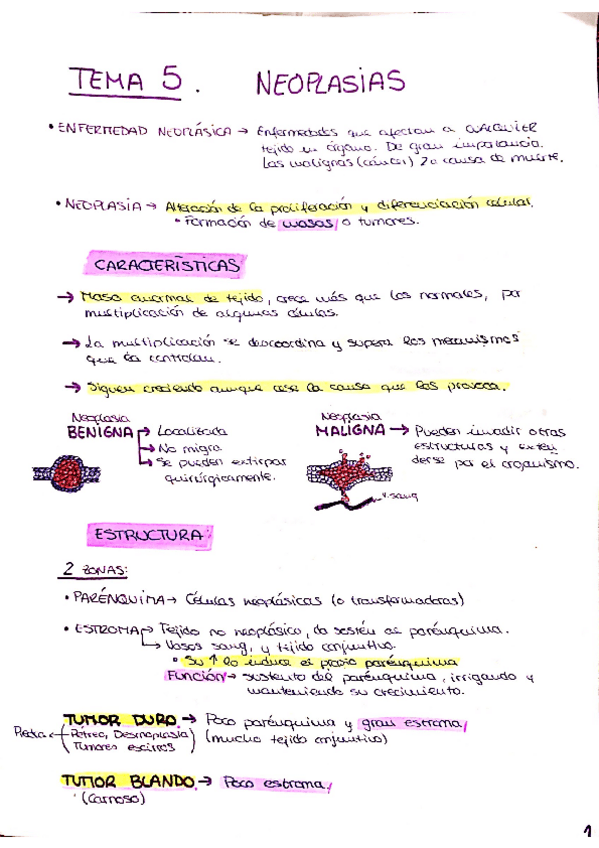 TEMA 5. NEOPLASIAS
• ENFERMEDAD NEOPLÁSICA → Enfermedades que afectan a CUALQUIER
tejido u órgano. De gran importancia.
Las malignas (cáncer) 2ª causa de muerte.
• NEOPLASIA → Alteración de la proliferación y diferenciación celular.
• Formación de masas o tumores.
CARACTERÍSTICAS
→ Masa anormal de tejido, crece más que los normales, por
multiplicación de algunas células.
→ La multiplicación se descoordina y supera los mecanismos
que la controlan.
→ Siguen creciendo aunque cese la causa que las provoca.
Neoplasia
BENIGNA → Localizada
→ No migra
→ Se pueden extirpar
quirúrgicamente.
Neoplasia
MALIGNA → Pueden invadir otras
estructuras y exten
derse por el organismo.
v. sang
ESTRUCTURA:
2 ZONAS:
• PARÉNQUIMA → Células neoplásicas (o transformadoras)
• ESTROMA → Tejido no neoplásico, da sostén al parénquima.
→ Vasos sang, y tejido conjuntivo.
• Su ↑ lo induce el propio parénquima
Función → sustento del parénquima, irrigando y
manteniendo su crecimiento.
TUMOR DURO → Poco parénquima y gran estroma
Piedra ← (Pétreo, Desmoplasia) (mucho tejido conjuntivo)
Tumores escirros
TUMOR BLANDO → Poco estroma
(Carnoso)
1